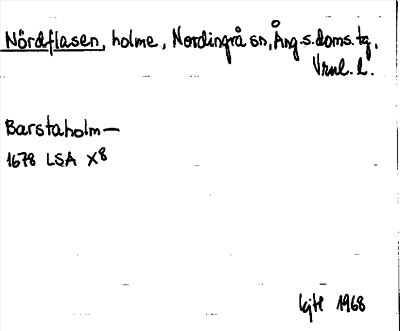 Nördflasen, holme, Nordingrå sn, Ång. s. doms. tg,
Vrnl. l.
Barstaholm—
1678 LSA X8
1968